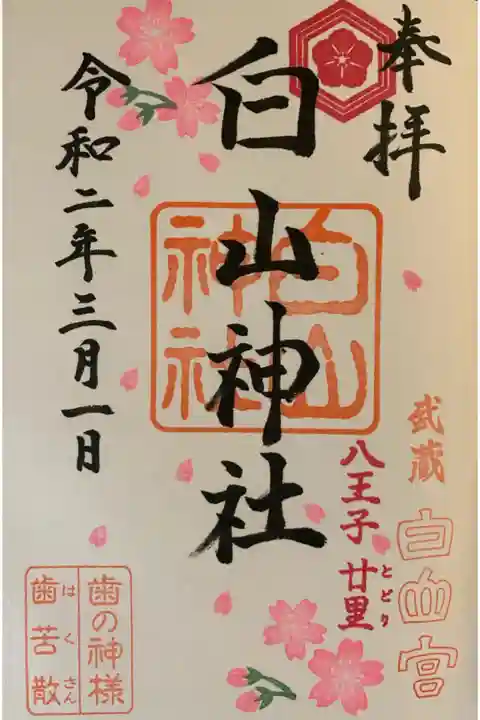 奉拝
武蔵
白山宮
八王子 廿里
とどり
白山神社
白山
神社
令和二年三月一日
歯の神様
歯苦散
はくさん